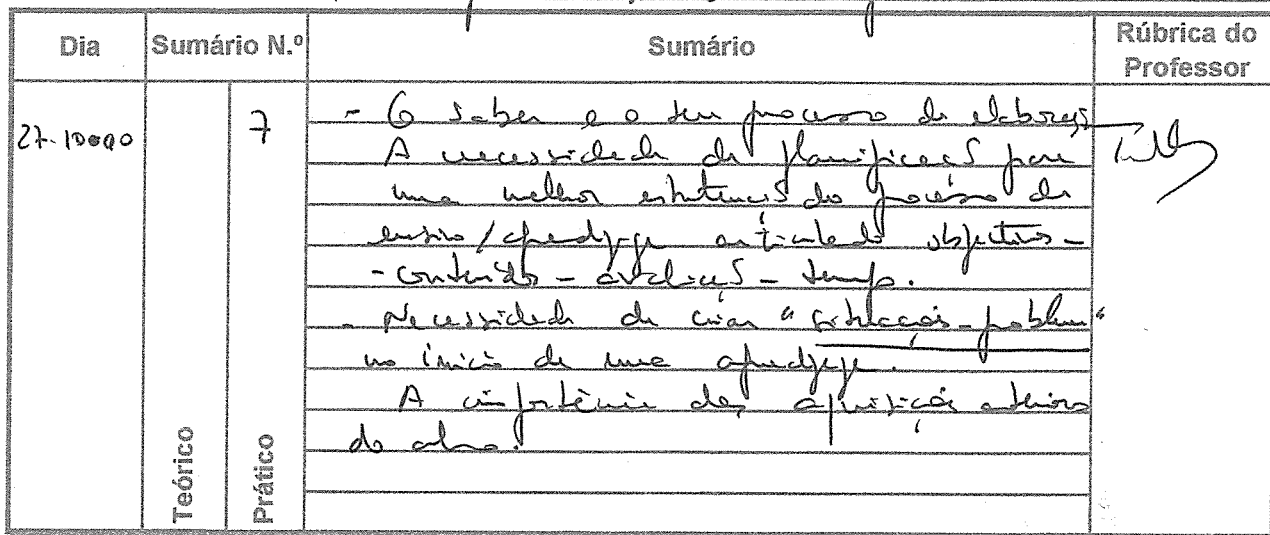 Dia Sumário N.º Sumário Rúbrica do Professor
27-10 7
- O saber e o seu processo de elaboração
A necessidade de planificação para
uma melhor estruturação do processo de
ensino/aprendizagem articulando objectivos -
- conteúdos - avaliação - tempo.
- Necessidade de criar "situações-problema"
no início de uma aprendizagem.
A importância das aquisições anteriores
do aluno.
Teórico
Prático